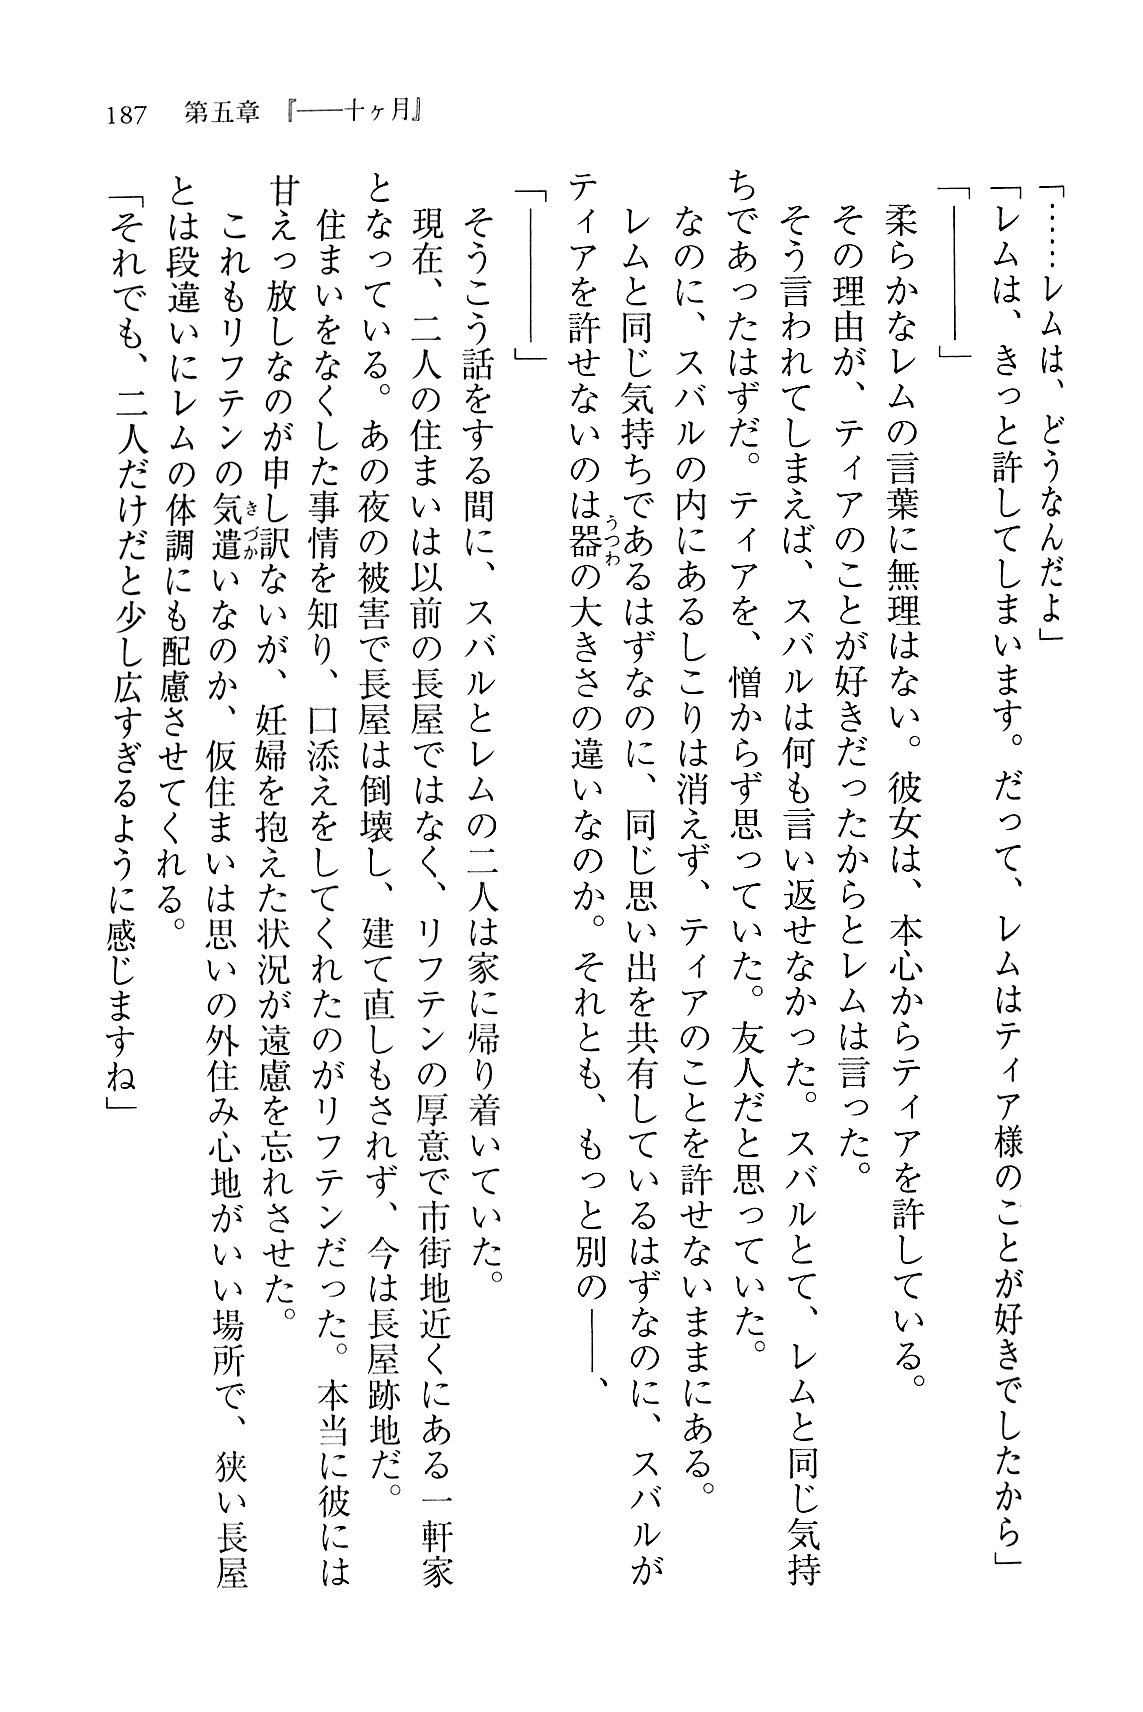 187　第五章　『――十ヶ月』
「……レムは、どうなんだよ」
「レムは、きっと許してしまいます。だって、レムはティア様のことが好きでしたから」
「――――」
　柔らかなレムの言葉に無理はない。彼女は、本心からティアを許している。
　その理由が、ティアのことが好きだったからとレムは言った。
　そう言われてしまえば、スバルは何も言い返せなかった。スバルとて、レムと同じ気持
ちであったはずだ。ティアを、憎からず思っていた。友人だと思っていた。
　なのに、スバルの内にあるしこりは消えず、ティアのことを許せないままにある。
　レムと同じ気持ちであるはずなのに、同じ思い出を共有しているはずなのに、スバルが
ティアを許せないのは器の大きさの違いなのか。それとも、もっと別の――、
「――――」
　そうこう話をする間に、スバルとレムの二人は家に帰り着いていた。
　現在、二人の住まいは以前の長屋ではなく、リフテンの厚意で市街地近くにある一軒家
となっている。あの夜の被害で長屋は倒壊し、建て直しもされず、今は長屋跡地だ。
　住まいをなくした事情を知り、口添えをしてくれたのがリフテンだった。本当に彼には
甘えっ放しなのが申し訳ないが、妊婦を抱えた状況が遠慮を忘れさせた。
　これもリフテンの気遣いなのか、仮住まいは思いの外住み心地がいい場所で、狭い長屋
とは段違いにレムの体調にも配慮させてくれる。
「それでも、二人だけだと少し広すぎるように感じますね」